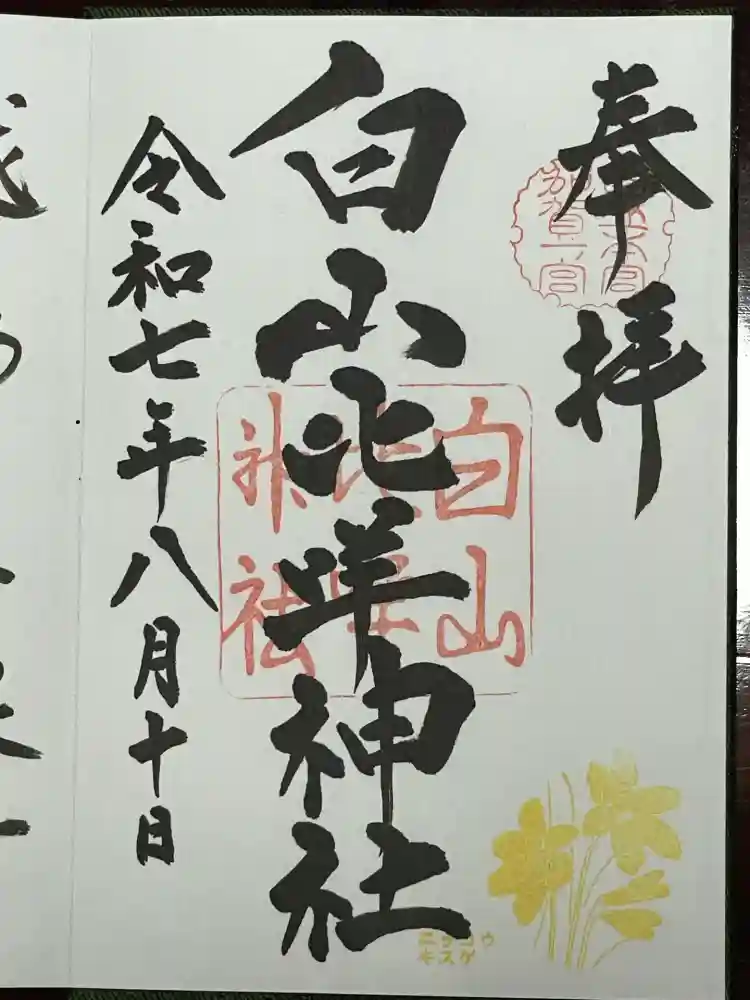 奉拝
白山比咩神社
令和七年八月十日
加賀一宮
白山
比咩
神社
ニッコウ
キスゲ